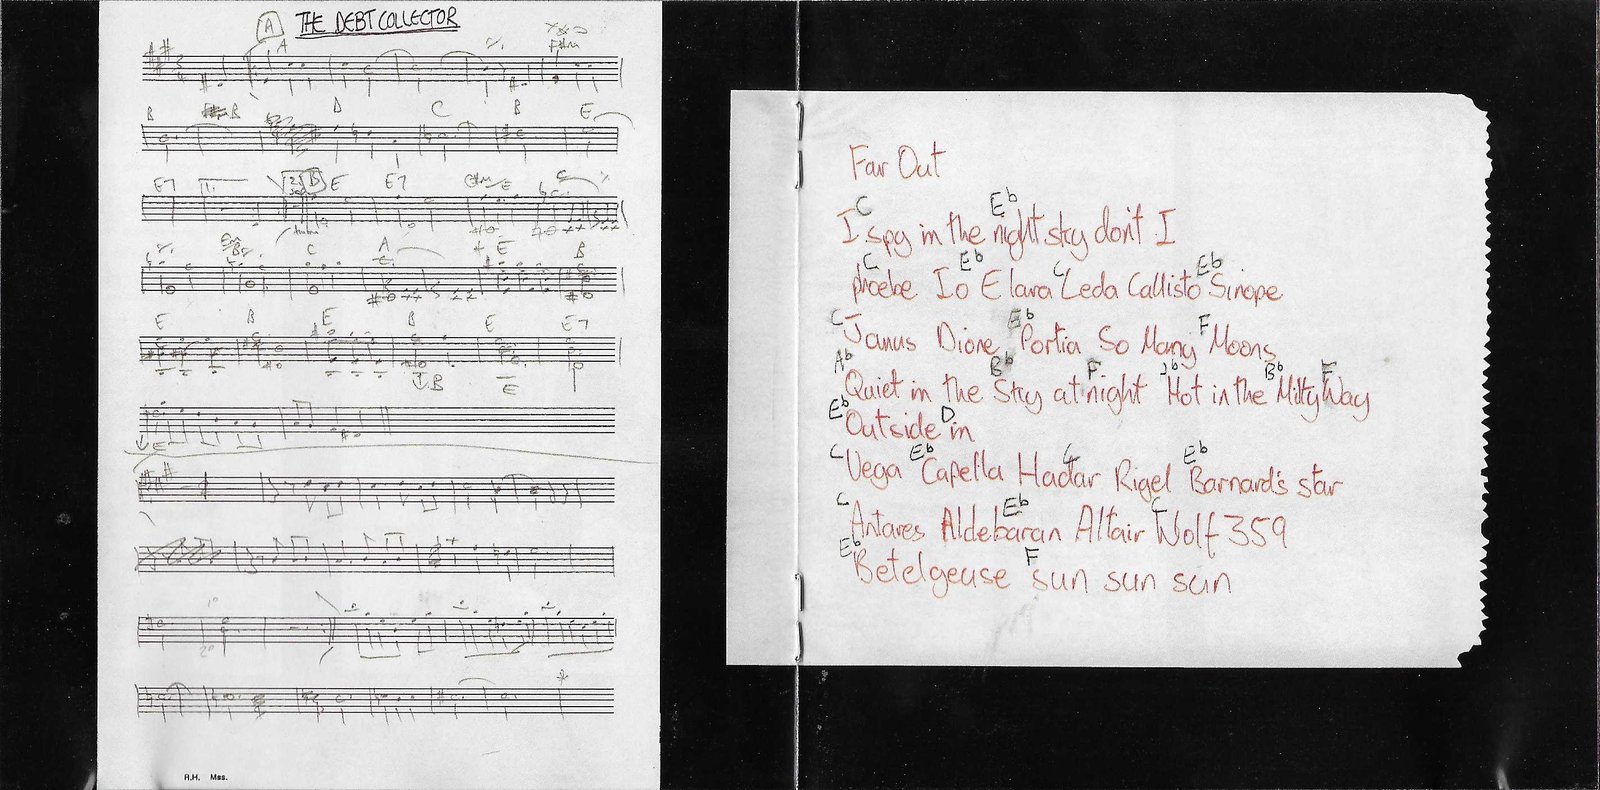 A THE DEBT COLLECTOR
A F#m
B B D C B E
E7 1. 2. B E E7 C#m E C
Em B C A E B
E B E B E E7
B E
E
1º
2º
R.H. Mss.
Far Out
C Eb
I spy in the night sky don't I
C Eb C Eb
phoebe Io Elara Leda Callisto Sinope
C Eb F
Janus Dione Portia So Many Moons
Ab Bb F Ab Bb F
Quiet in the Sky at night Hot in the Milky Way
Eb D
Outside in
C Eb C Eb
Vega Capella Hadar Rigel Barnard's star
C Eb C
Antares Aldebaran Altair Wolf 359
Eb F
Betelgeuse sun sun sun